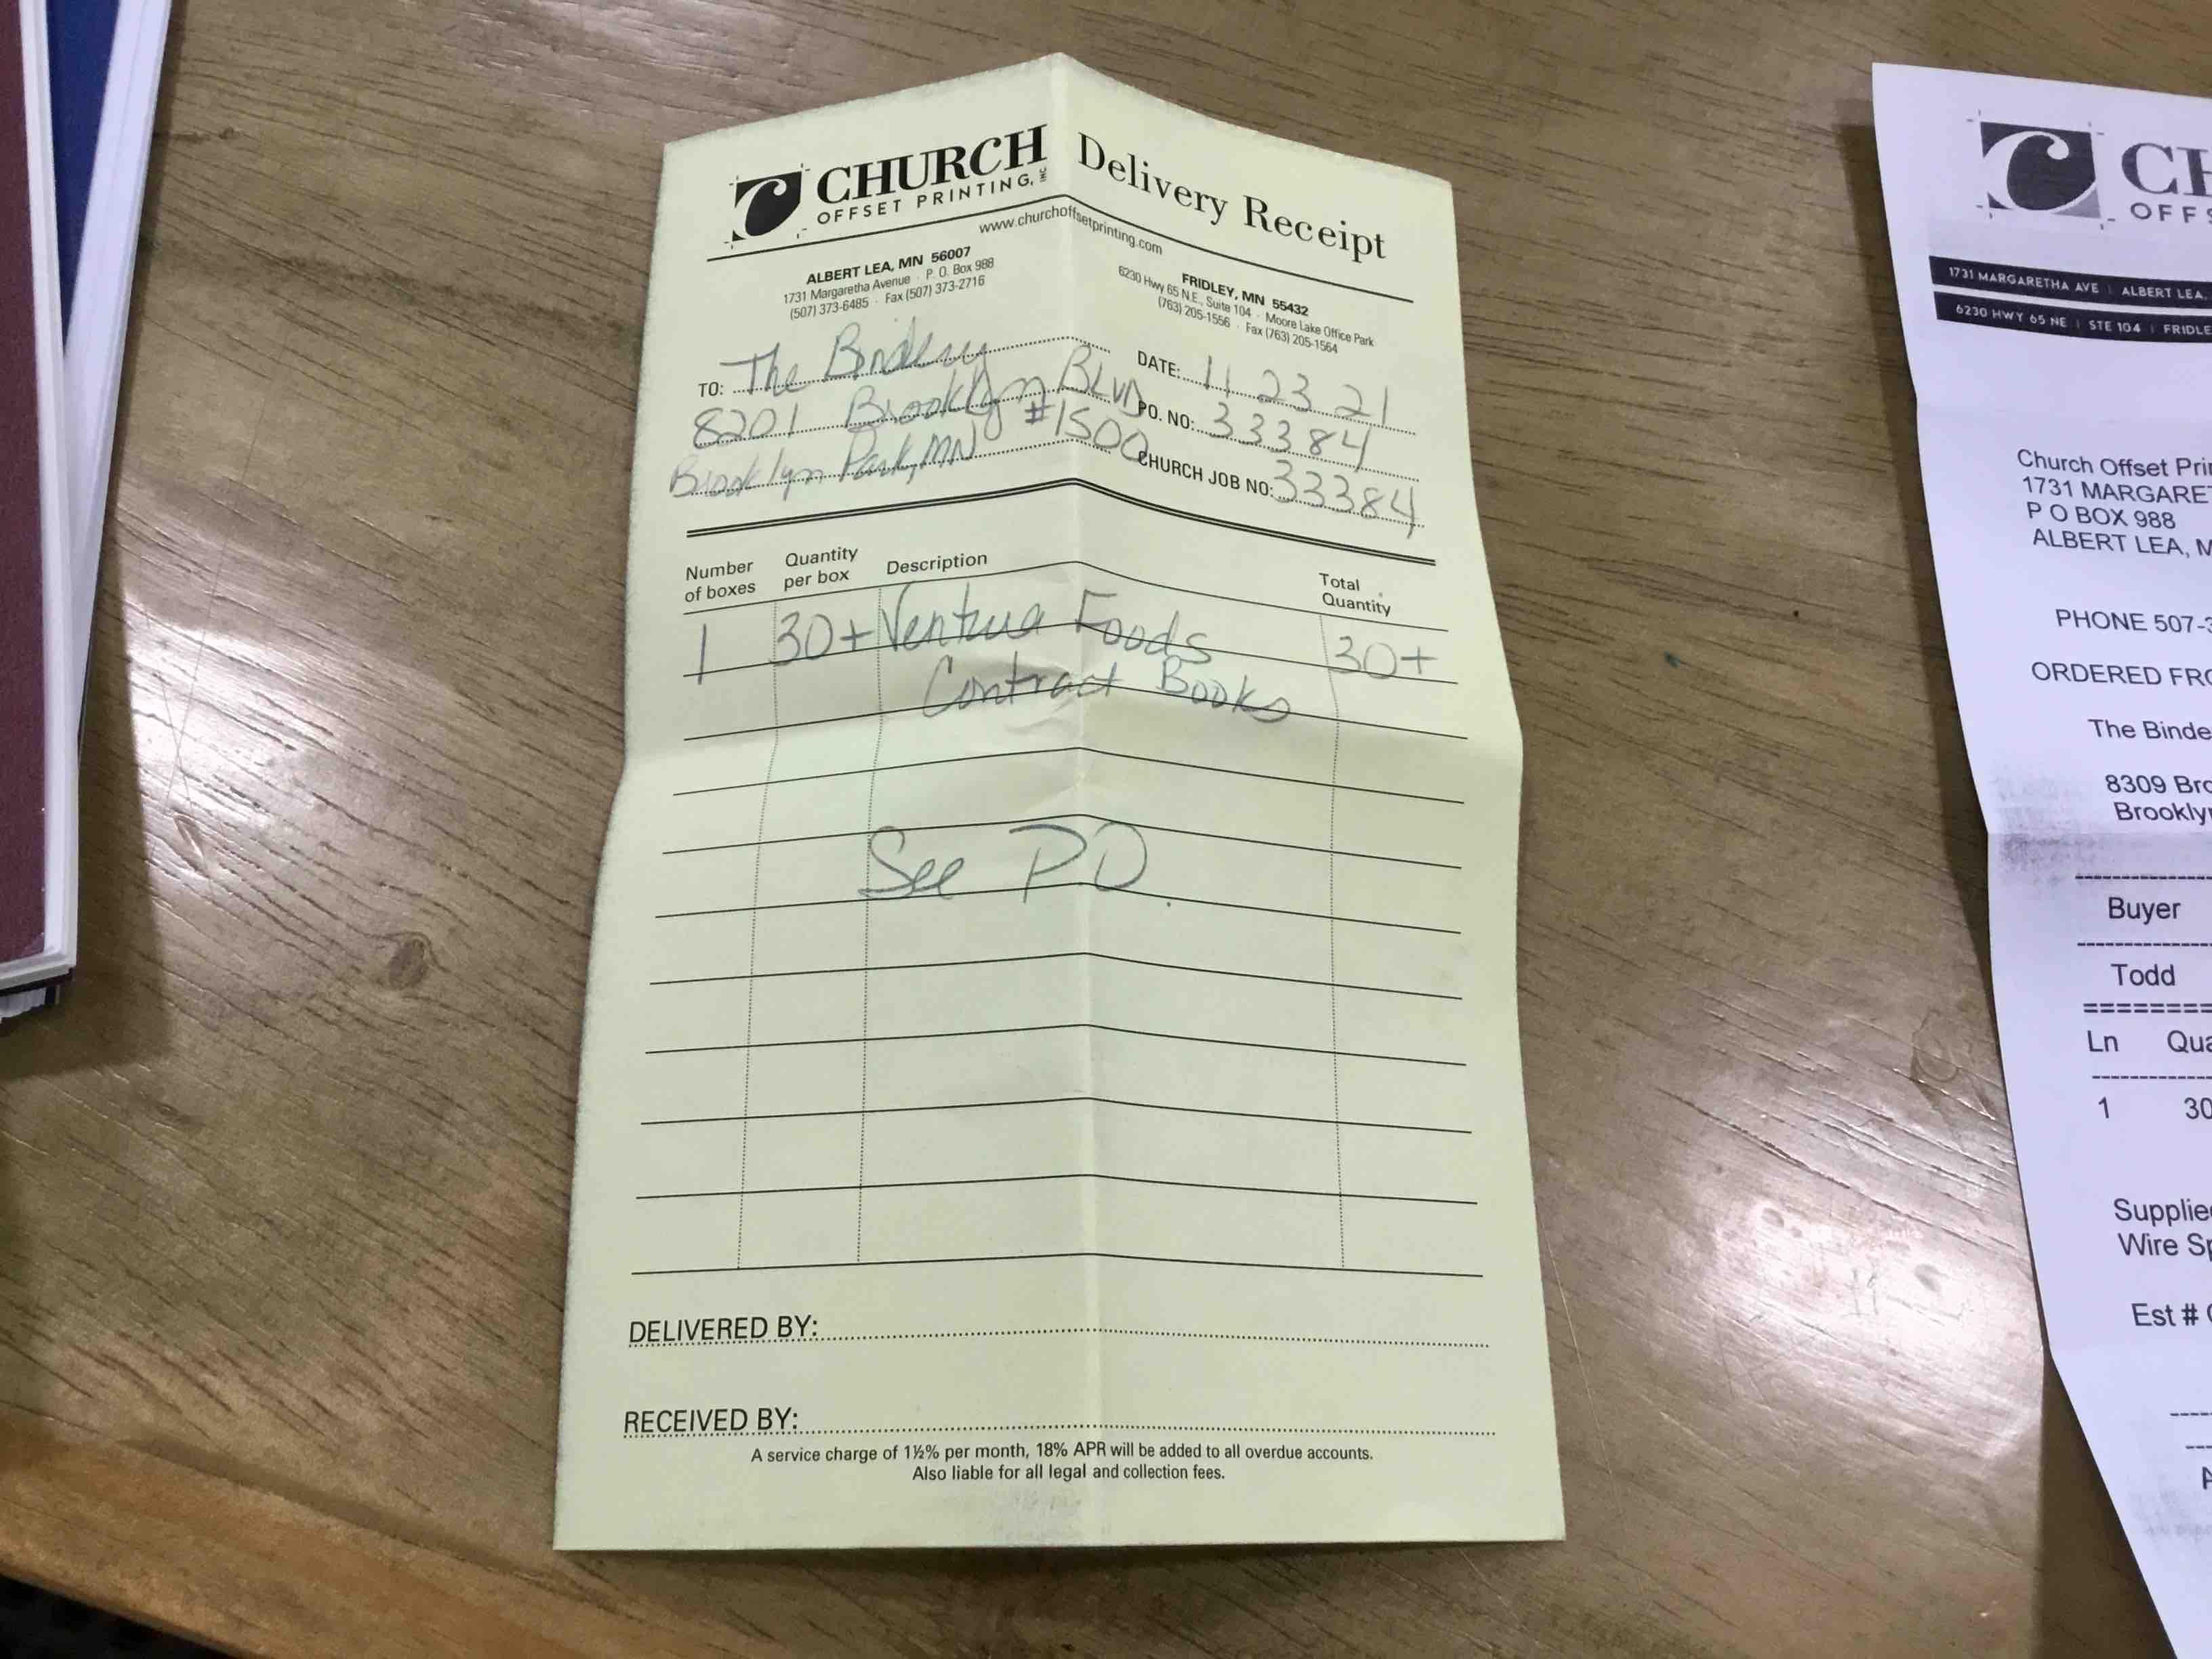 CHURCH
OFFSET PRINTING, INC
Delivery Receipt
www.churchoffsetprinting.com
ALBERT LEA, MN 56007
1731 Margaretha Avenue · P. O. Box 988
(507) 373-6485 · Fax (507) 373-2716
FRIDLEY, MN 55432
6230 Hwy 65 N.E., Suite 104 · Moore Lake Office Park
(763) 205-1556 · Fax (763) 205-1564
TO: The Bindery
8201 Brooklyn BLVD
#1500
Brooklyn Park, MN
DATE: 11 23 21
PO. NO: 33384
CHURCH JOB NO: 33384
Number of boxes
Quantity per box
Description
Total Quantity
1 30+ Ventura Foods 30+
Contract Books
See PO
DELIVERED BY:
RECEIVED BY:
A service charge of 1½% per month, 18% APR will be added to all overdue accounts.
Also liable for all legal and collection fees.
CH
OFFS
1731 MARGARETHA AVE | ALBERT LEA,
6230 HWY 65 NE | STE 104 | FRIDLE
Church Offset Prin
1731 MARGARET
P O BOX 988
ALBERT LEA, M
PHONE 507-3
ORDERED FRO
The Binde
8309 Bro
Brooklyn
Buyer
Todd
Ln Qua
1 30
Supplie
Wire Sp
Est #